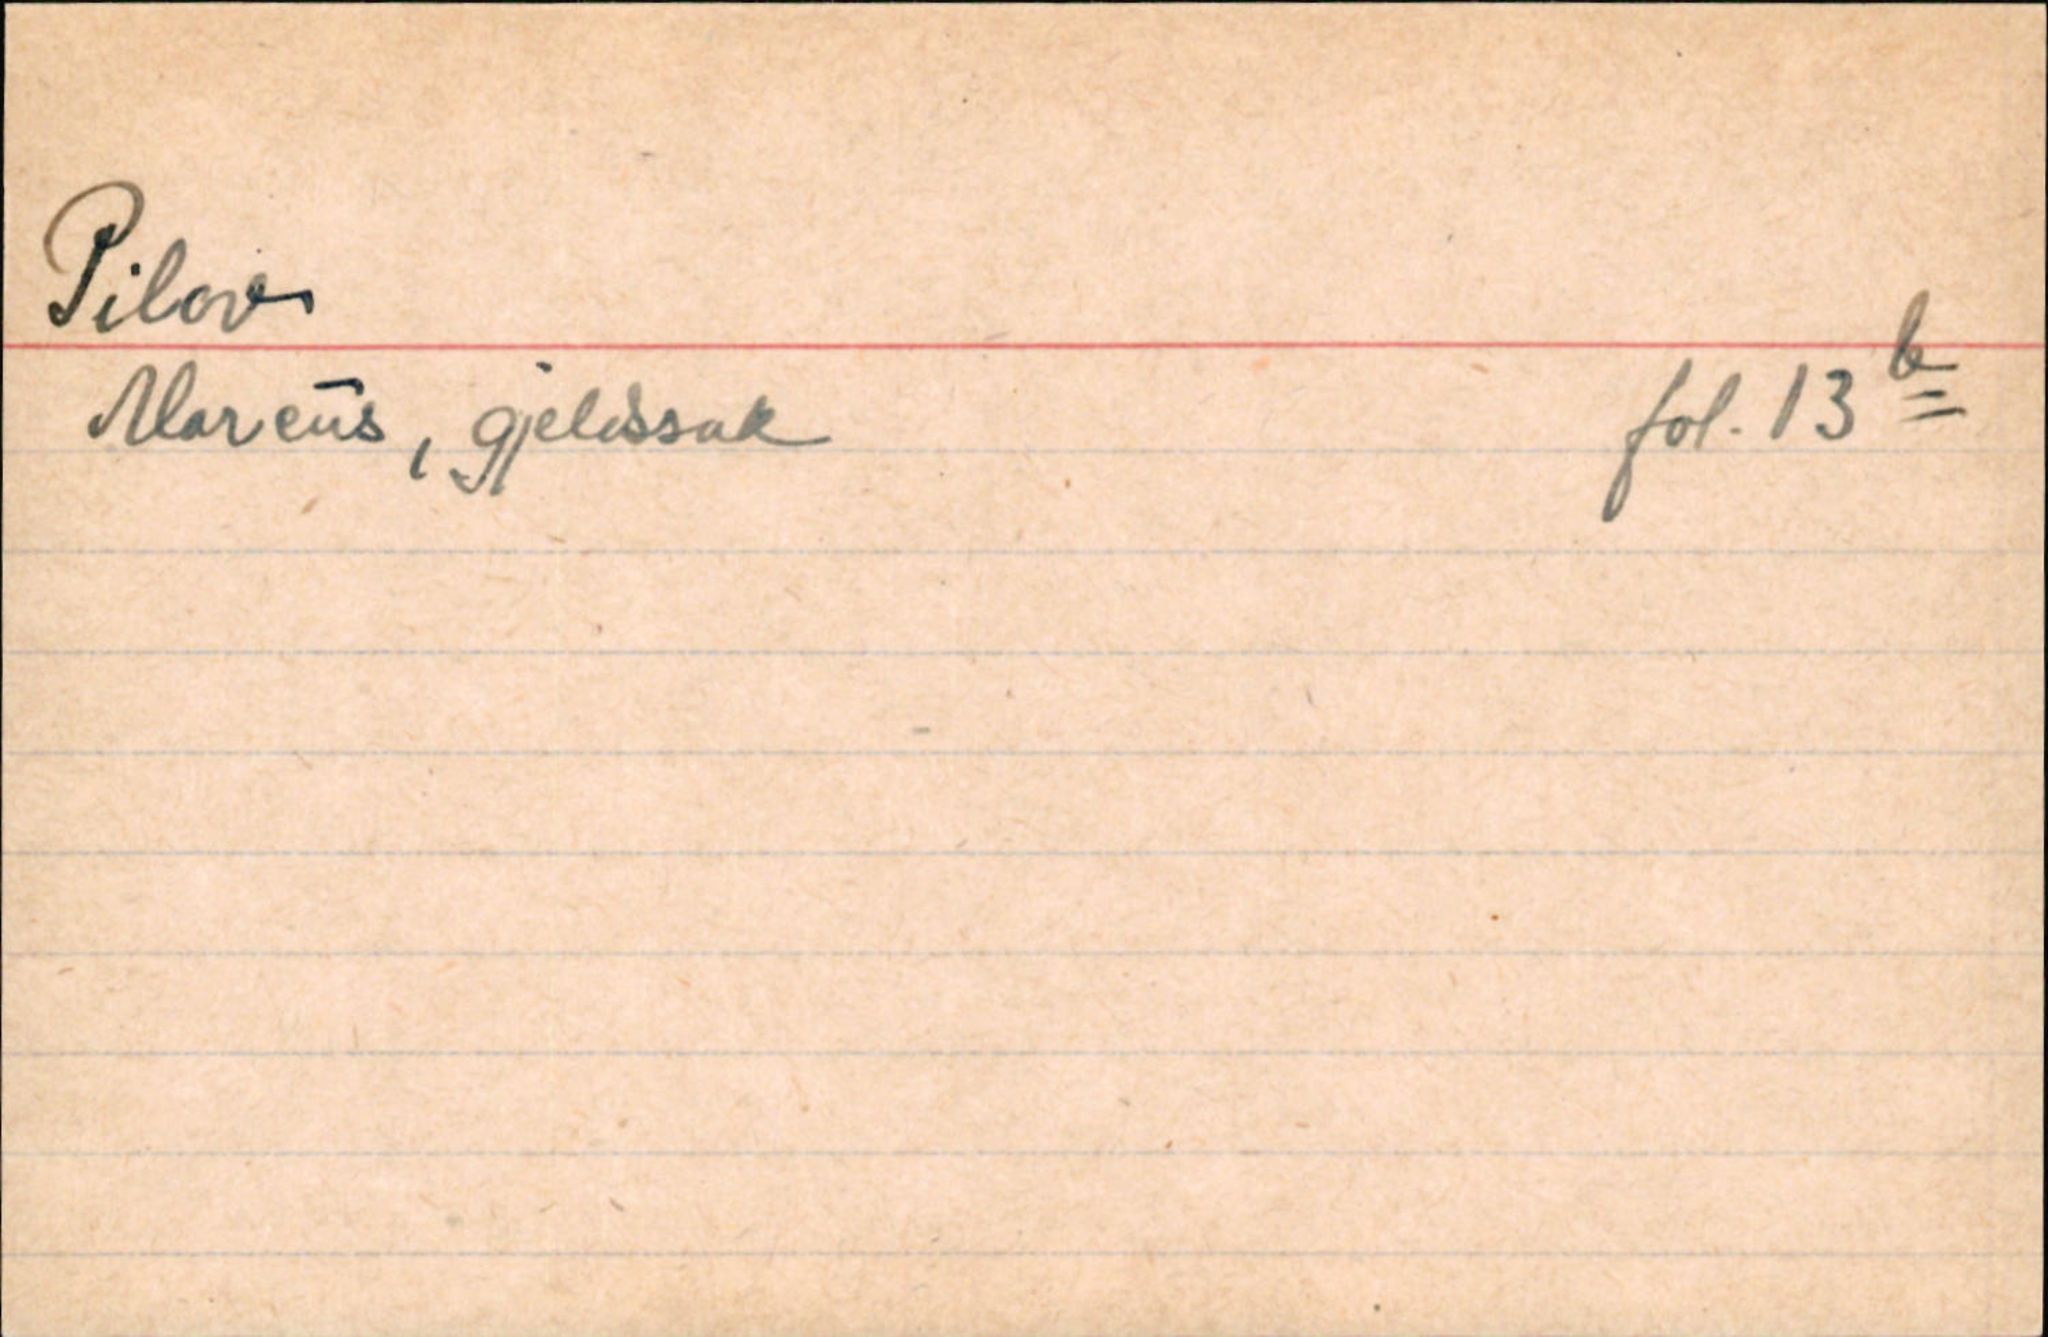 Pilov
Marcus, gjeldssak fol. 13 b